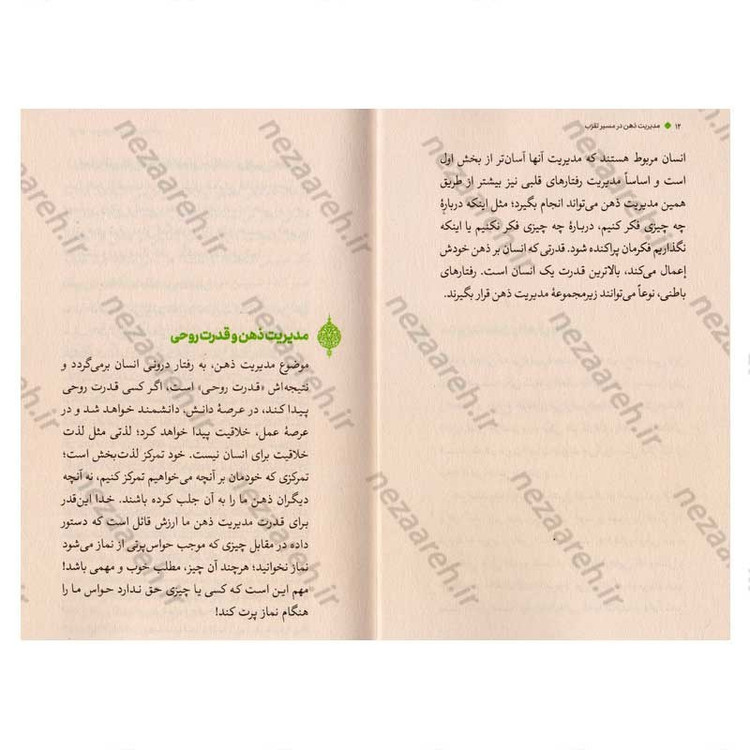 ۱۲ ◆ مدیریت ذهن در مسیر تقرّب
انسان مربوط هستند که مدیریت آنها آسان‌تر از بخش اول
است و اساساً مدیریت رفتارهای قلبی نیز بیشتر از طریق
همین مدیریت ذهن می‌تواند انجام بگیرد؛ مثل اینکه دربارهٔ
چه چیزی فکر کنیم، دربـارهٔ چه چیزی فکر نکنیم یا اینکه
نگذاریم فکرمان پراکنده شود. قدرتی که انسان بر ذهن خودش
إعمال می‌کند، بالاترین قدرت یک انسان است. رفتارهای
باطنی، نوعاً می‌توانند زیرمجموعهٔ مدیریت ذهن قرار بگیرند.
مدیریت ذهن و قدرت روحی
موضوع مدیریت ذهـن، به رفتار درونی انسان برمی‌گردد و
نتیجه‌اش «قـدرت روحـی» است، اگر کسی قدرت روحی
پیـدا کنـد، در عرصهٔ دانـش، دانشمند خواهد شـد و در
عرصهٔ عمل، خلاقیت پیدا خواهد کرد؛ لذتی مثل لذت
خلاقیت برای انسان نیست. خود تمرکز لذت‌بخش است؛
تمرکزی که خودمان بر آنچه می‌خواهیم تمرکز کنیم، نه آنچه
دیگران ذهـن ما را به آن جلب کرده باشند. خدا این‌قدر
برای قدرت مدیریت ذهن ما ارزش قائل است که دستور
داده در مقابل چیزی که موجب حواس‌پرتی از نماز می‌شود
نماز نخوانید؛ هرچند آن چیز، مطلب خوب و مهمی باشد!
مهم این است که کسی یا چیزی حق نـدارد حواس ما را
هنگام نماز پرت کند!
nezaareh.ir
nezaareh.ir
nezaareh.ir
nezaareh.ir
nezaareh.ir
nezaareh.ir
nezaareh.ir
nezaareh.ir